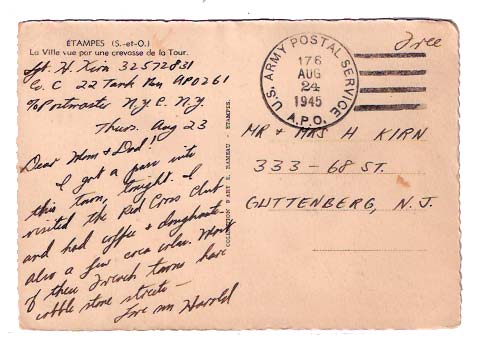 ÉTAMPES (S.-et-O.)
La Ville vue par une crevasse de la Tour.
Sgt. H. Kirn 32572831
Co. C 22 Tank Bn APO 261
% Postmaster N.Y.C. N.Y.
Thurs. Aug 23
Dear Mom + Dad!
I got a pass into
this town, tonight. I
visited the Red Cross Club
and had coffee + doughnuts.
Also a few coca colas. Most
of these French towns have
cobble stone streets—
Love son Harold
COLLECTION D'ART E. RAMEAU - ÉTAMPES.
U.S. ARMY POSTAL SERVICE
176
AUG
24
1945
A.P.O.
Free
MR + MRS H KIRN
333 - 68 ST.
GUTTENBERG, N. J.